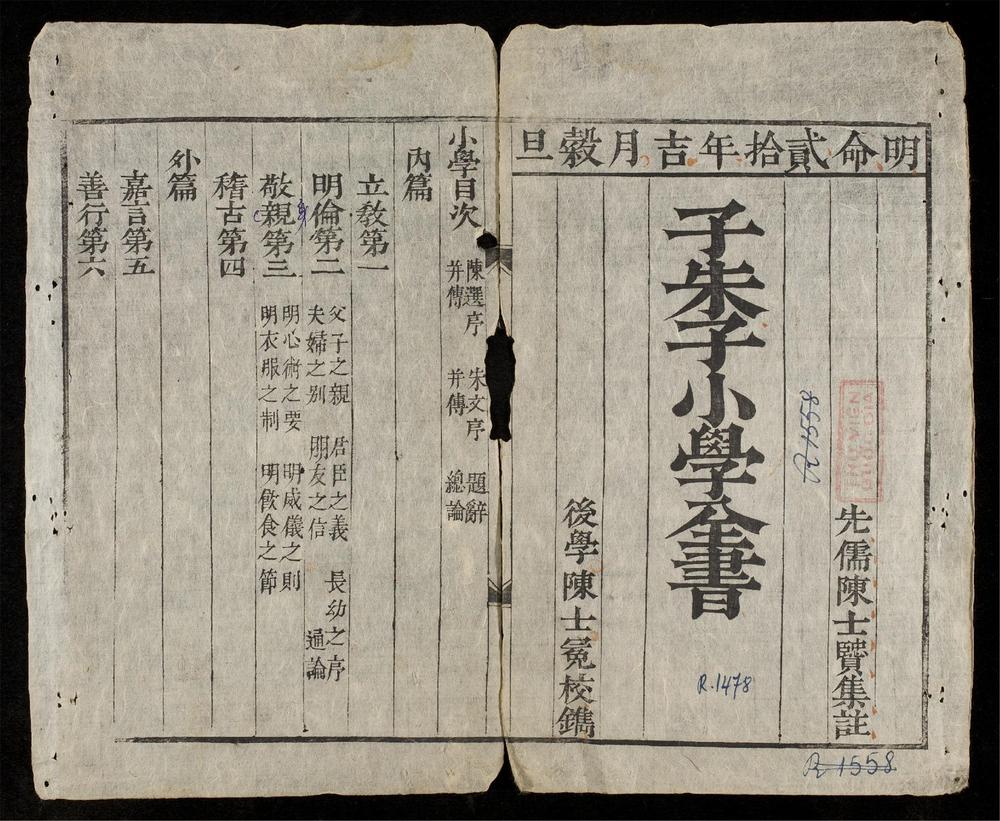 明命貳拾年吉月穀旦
先儒陳士賢集註
子朱子小學全書
後學陳士冕校鐫
R.1558
R.1478
R 1558
小學目次 陳選序并傳 朱文序并傳 題辭 總論
內篇
立教第一
明倫第二 父子之親 君臣之義 長幼之序 夫婦之別 朋友之信 通論
敬親第三 明心術之要 明威儀之則 明衣服之制 明飲食之節
稽古第四
外篇
嘉言第五
善行第六